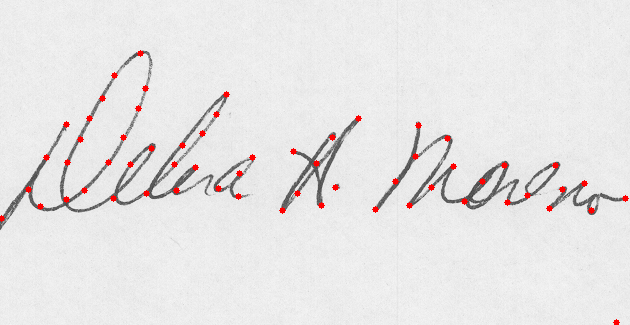 Debra H. Moreno